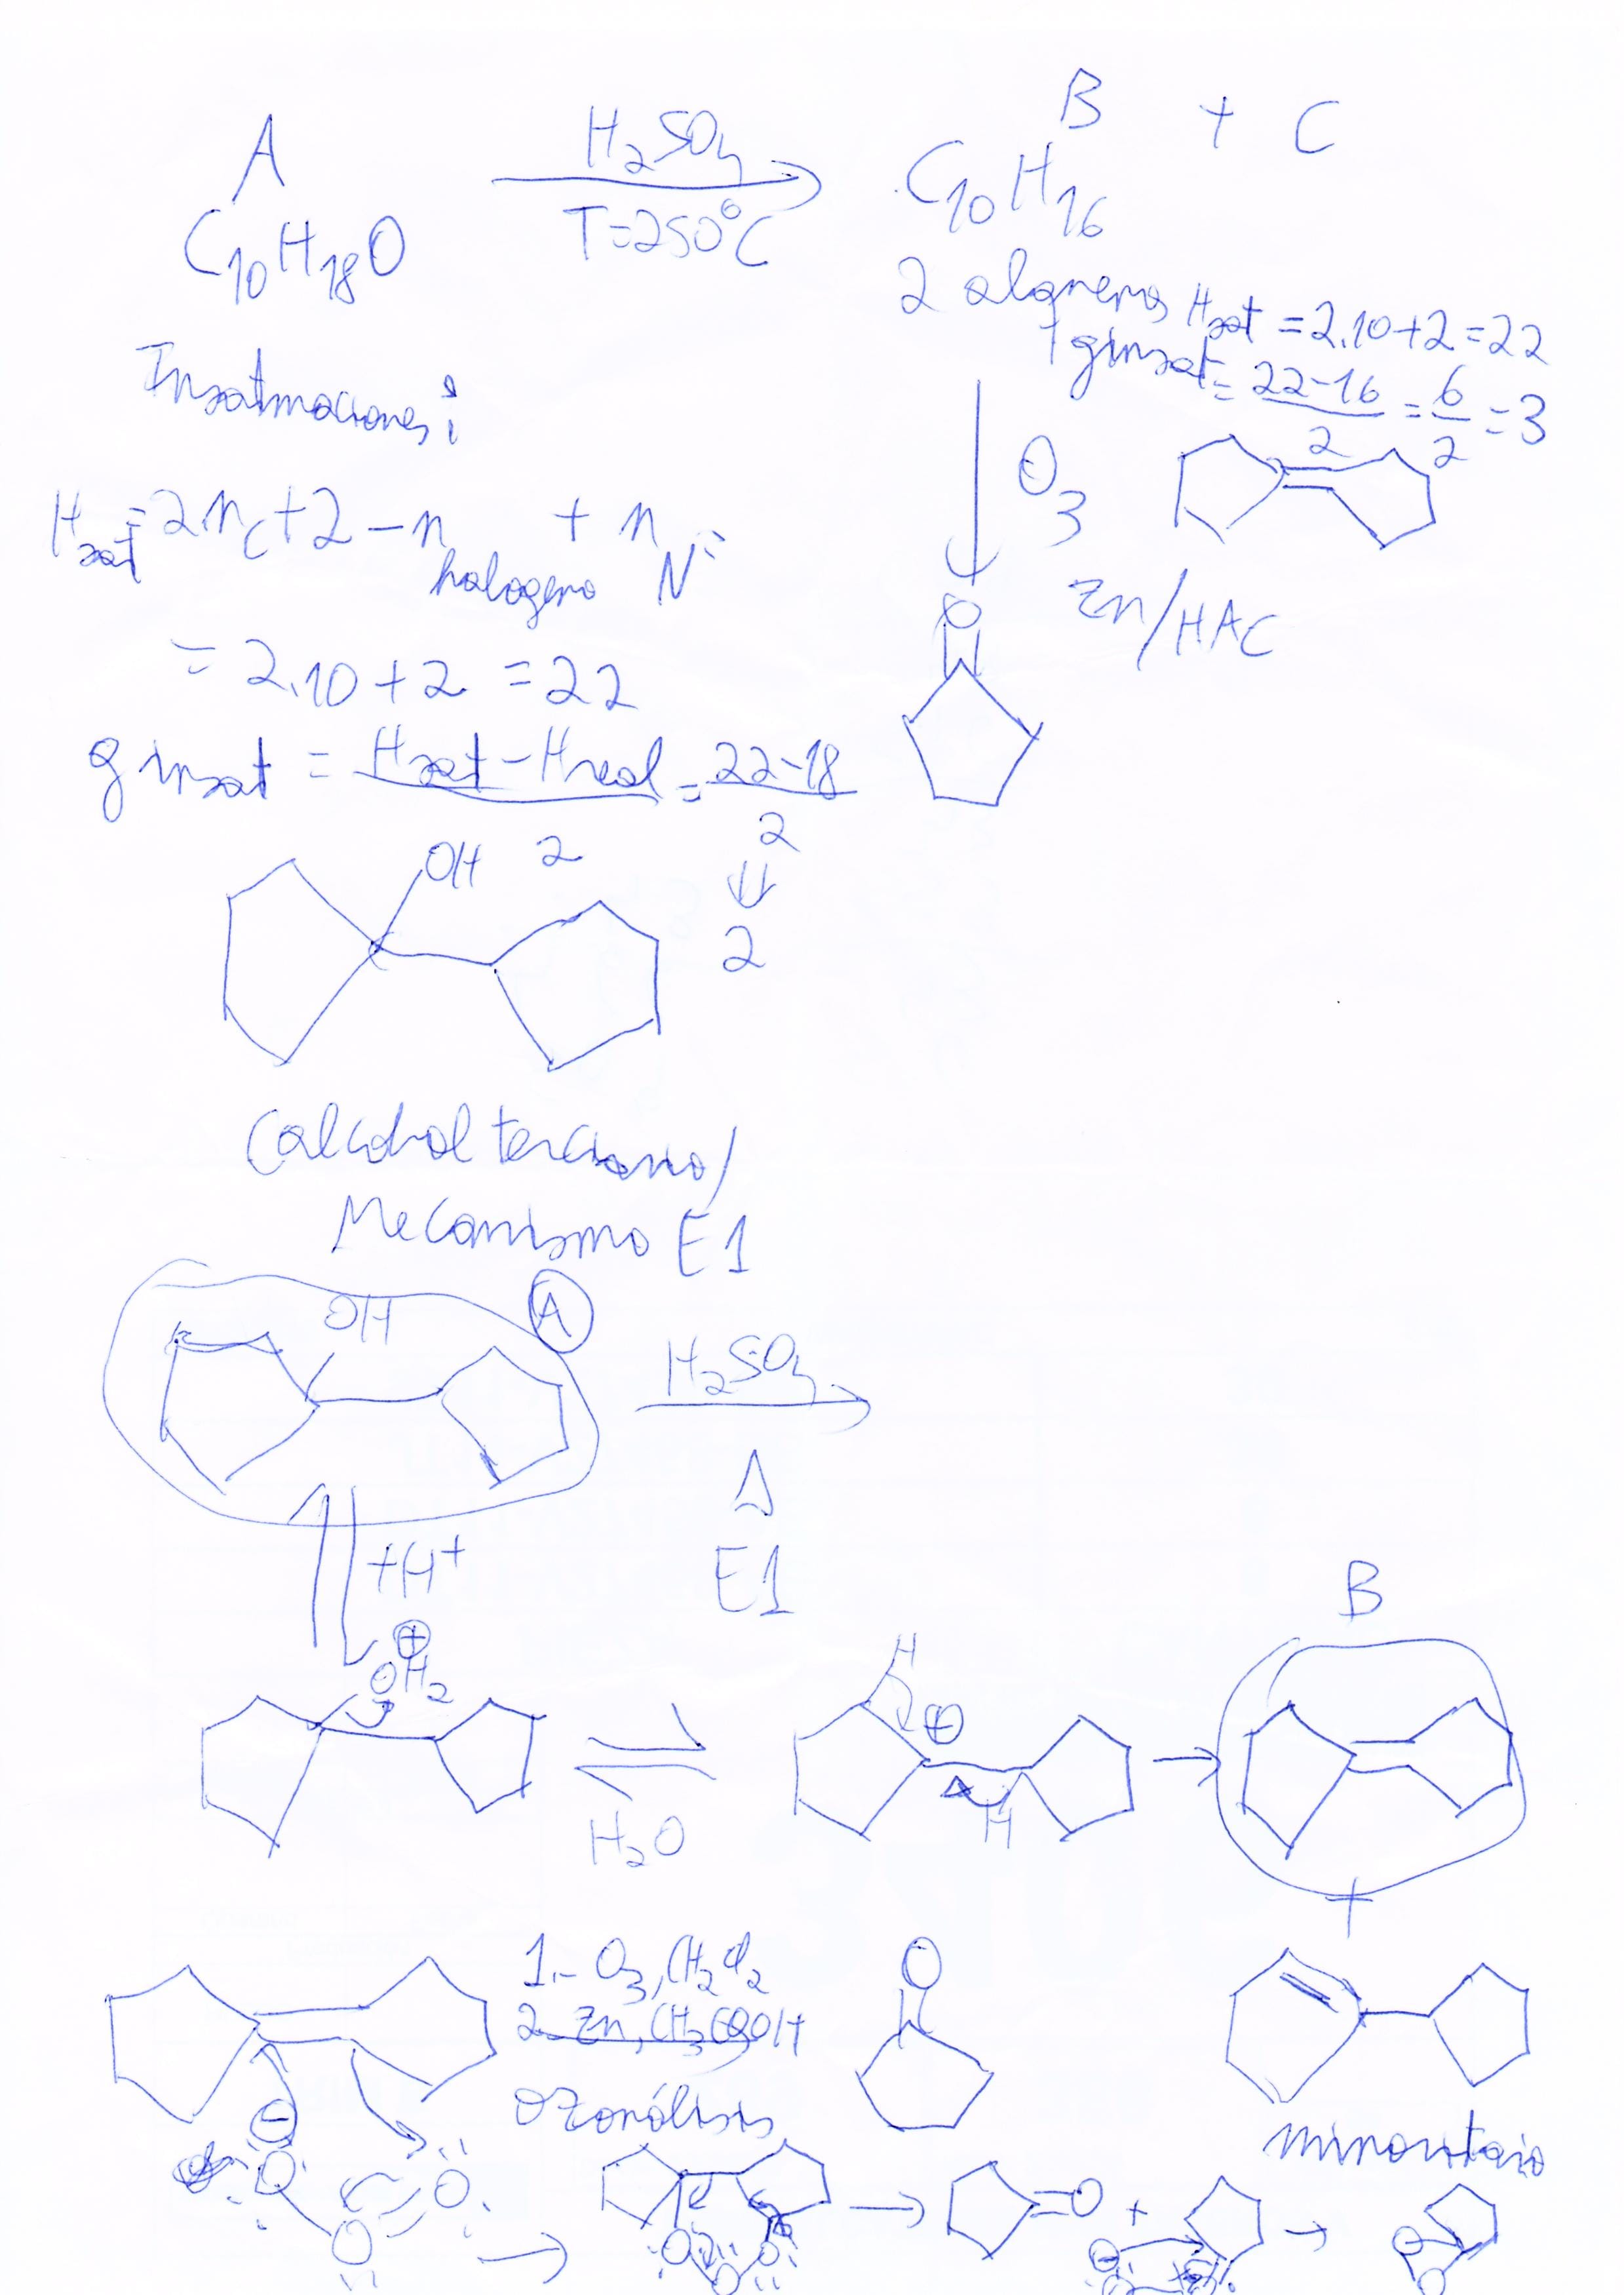 A
H₂SO₄
B + C
C₁₀H₁₈O
T=250°C
C₁₀H₁₆
2 alquenos
H sat = 2.10+2=22
g insat = 22-16/2 = 6/2 = 3
Insaturaciones:
O₃
Zn/HAc
H sat = 2n c + 2 - n halogeno + n N =
= 2.10+2 = 22
g insat = H sat - H real / 2 = 22-18 / 2
⇓
2
O
OH
(alcohol terciario/
Mecanismo E1
A
OH
H₂SO₄
Δ
E1
+H⁺
⊕
OH₂
H₂O
H
⊕
H
B
+
1.- O₃, CH₂Cl₂
2. Zn, CH₃COOH
Ozonólisis
O
minoritario
⊖
O
O
O
O
O
O
O
+
O
O